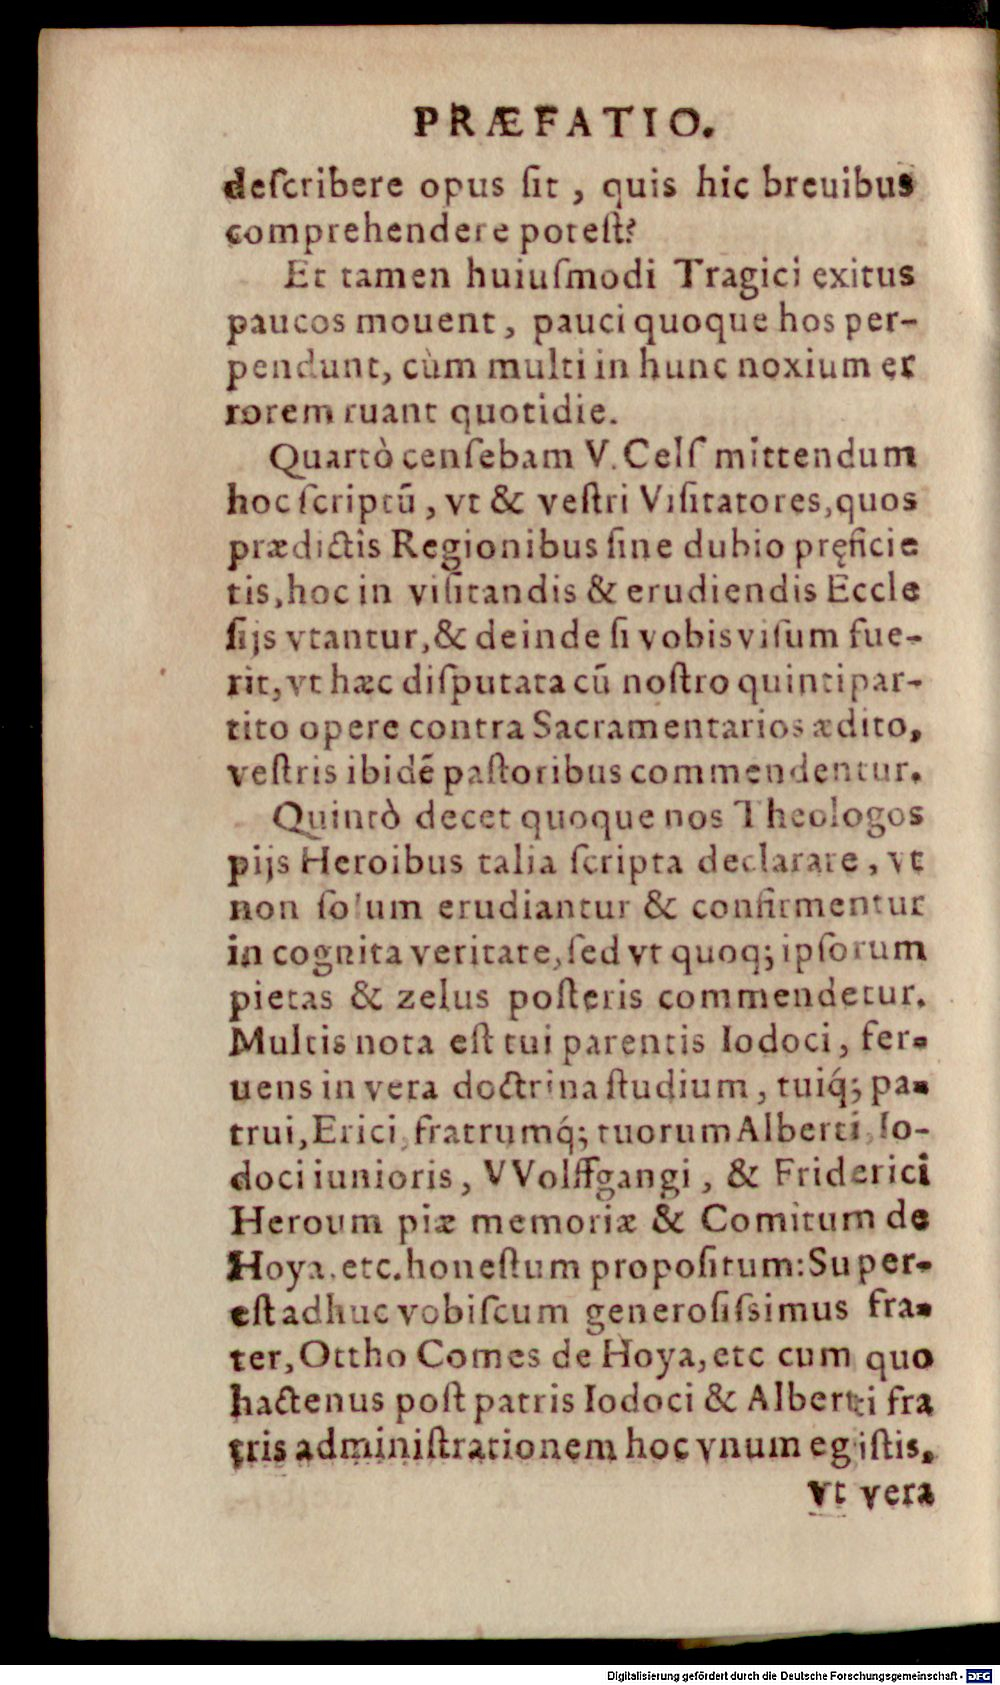 PRÆFATIO.
deſcribere opus ſit, quis hic breuibus
comprehendere poteſt?
Et tamen huiuſmodi Tragici exitus
paucos mouent, pauci quoque hos per-
pendunt, cùm multi in hunc noxium er
rorem ruant quotidie.
Quartò cenſebam V. Celſ mittendum
hoc ſcriptū, vt & veſtri Viſitatores, quos
prædictis Regionibus ſine dubio pręficie
tis, hoc in viſitandis & erudiendis Eccle
ſijs vtantur, & deinde ſi vobis viſum fue-
rit, vt hæc diſputata cū noſtro quintipar-
tito opere contra Sacramentarios ædito,
veſtris ibidē paſtoribus commendentur.
Quintò decet quoque nos Theologos
pijs Heroibus talia ſcripta declarare, vt
non ſolum erudiantur & confirmentur
in cognita veritate, ſed vt quoq; ipſorum
pietas & zelus poſteris commendetur.
Multis nota eſt tui parentis Iodoci, fer-
uens in vera doctrina ſtudium, tuiq́; pa-
trui, Erici, fratrumq́; tuorum Alberti, Io-
doci iunioris, VVolffgangi, & Friderici
Heroum piæ memoriæ & Comitum de
Hoya, etc. honeſtum propoſitum: Super-
eſt adhuc vobiſcum generoſiſsimus fra-
ter, Ottho Comes de Hoya, etc cum quo
hactenus poſt patris Iodoci & Alberti fra
tris adminiſtrationem hoc vnum egiſtis,
vt vera
Digitalisierung gefördert durch die Deutsche Forschungsgemeinschaft - DFG